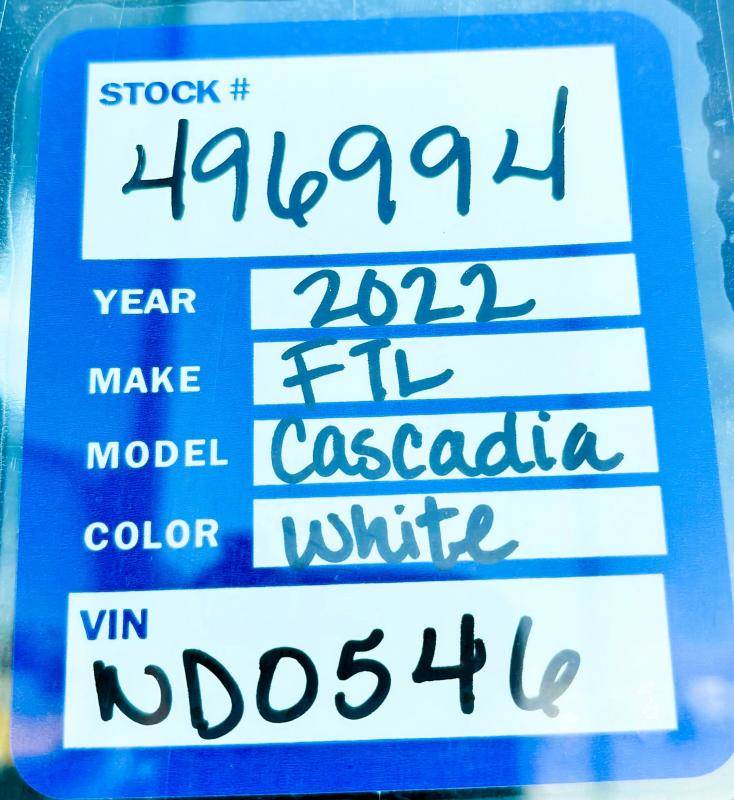 STOCK #
496994
YEAR 2022
MAKE FTL
MODEL Cascadia
COLOR White
VIN
ND0546